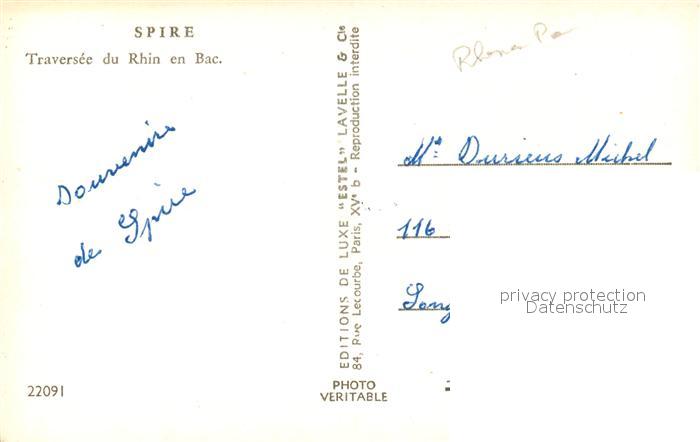 SPIRE
Traversée du Rhin en Bac.
Souvenire
de Spire
22091
EDITIONS DE LUXE "ESTEL" LAVELLE & Cie
84, Rue Lecourbe, Paris, XVe b - Reproduction interdite
PHOTO
VERITABLE
Mr Duriens Michel
116
Long
privacy protection
Datenschutz